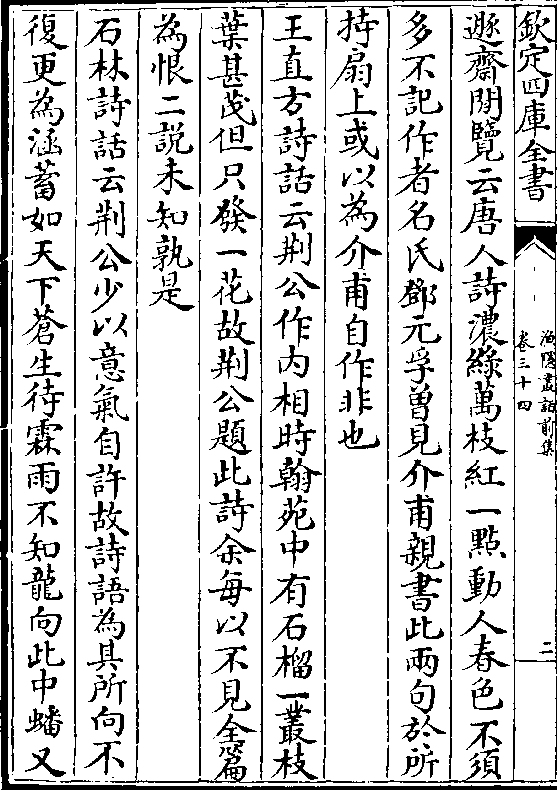 欽定四庫全書
漁隱叢話前集
卷三十四
二
遯齋閒覽云唐人詩濃綠萬枝紅一點動人春色不須
多不記作者名氏鄧元孚曽見介甫親書此兩句於所
持扇上或以為介甫自作非也
王直方詩話云荆公作内相時翰苑中有石榴一叢枝
葉甚茂但只發一花故荆公題此詩余每以不見全篇
為恨二説未知孰是
石林詩話云荆公少以意氣自許故詩語為其所向不
復更為涵蓄如天下蒼生待霖雨不知龍向此中蟠又